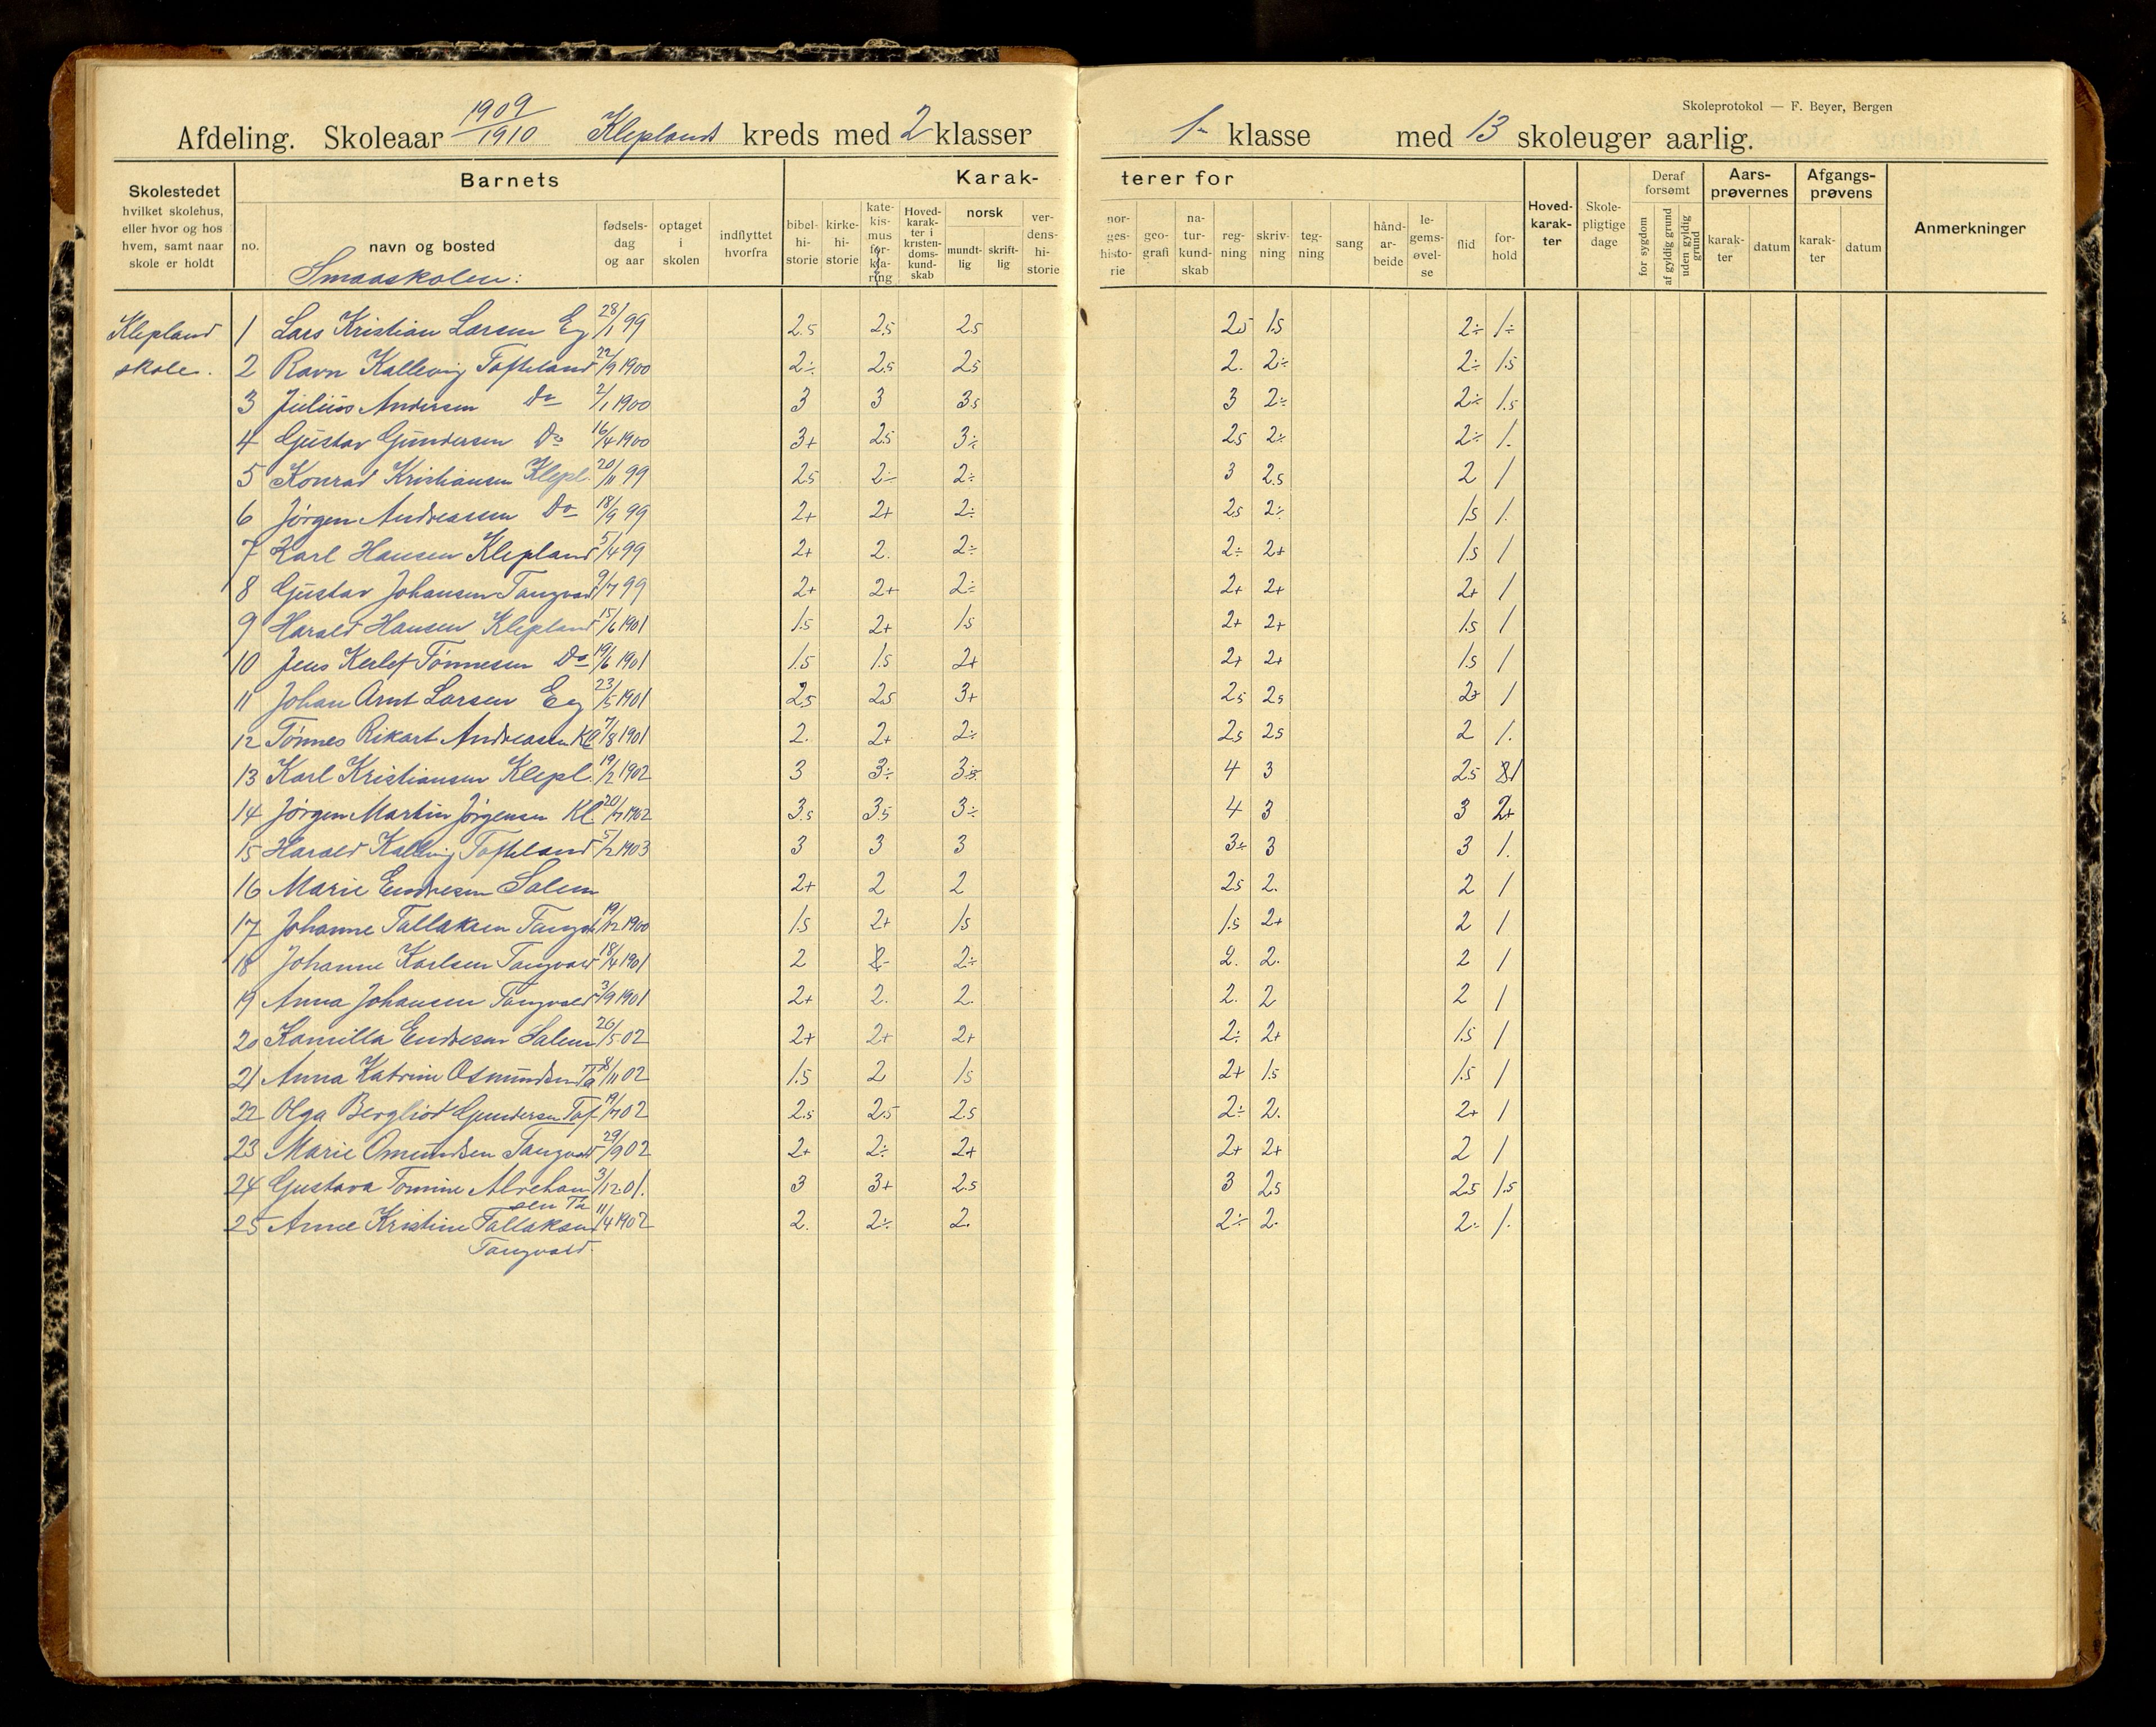 Skoleprotokol — F. Beyer, Bergen
Afdeling. Skoleaar 1909/1910 Kleplands kreds med 2 klasser 1- klasse med 13 skoleuger aarlig.
Skolestedet hvilket skolehus, eller hvor og hos hvem, samt naar skole er holdt
Barnets
no. navn og bosted fødsels-dag og aar optaget i skolen indflyttet hvorfra
Karak- terer for
bibel-hi-storie kirke-hi-storie kate-kis-mus for-kla-ring Hoved-karak-ter i kristen-doms-kund-skab norsk mundt-lig skrift-lig ver-dens-hi-storie nor-ges-histo-rie geo-grafi na-tur-kund-skab reg-ning skriv-ning teg-ning sang hånd-ar-beide le-gems-øvel-se flid for-hold
Hoved-karak-ter
Skole-pligtige dage
Deraf forsømt for sygdom af gyldig grund uden gyldig grund
Aars-prøvernes karak-ter datum
Afgangs-prøvens karak-ter datum
Anmerkninger
Smaaskolen:
Klepland 1 Lars Kristian Larsen Eg 28/1 99 2.5 2.5 2.5 2.5 1.5 2÷ 1÷
skole. 2 Ravn Kallevig Tofteland 22/9 1900 2÷ 2.5 2.5 2. 2÷ 2÷ 1.5
3 Julius Andersen Do 2/1 1900 3 3 3.5 3 2÷ 2÷ 1.5
4 Gustav Gundersen Do 16/4 1900 3+ 2.5 3÷ 2.5 2÷ 2÷ 1.
5 Konrad Kristiansen Klepl. 20/11 99 2.5 2÷ 2÷ 3 2.5 2 1
6 Jørgen Andreassen Do 18/9 99 2+ 2+ 2÷ 2.5 2÷ 1.5 1.
7 Karl Hansen Klepland 5/4 99 2+ 2. 2÷ 2÷ 2+ 1.5 1
8 Gustav Johansen Tangvad 9/7 99 2+ 2+ 2÷ 2+ 2+ 2+ 1
9 Harald Hansen Klepland 15/6 1901 1.5 2+ 1.5 2+ 2+ 1.5 1
10 Jens Kerlof Tønnesen Do 19/6 1901 1.5 1.5 2+ 2+ 2+ 1.5 1
11 Johan Arnt Larsen Eg 23/5 1901 2.5 2.5 3+ 2.5 2.5 2+ 1
12 Tønnes Rikart Andreasen Kl 7/8 1901 2. 2+ 2÷ 2.5 2.5 2 1.
13 Karl Kristiansen Klepl. 19/2 1902 3 3÷ 3÷ 4 3 2.5 1
14 Jørgen Martin Jørgensen Kl. 20/7 1902 3.5 3.5 3÷ 4 3 3 2+
15 Harald Kallevig Tofteland 5/2 1903 3 3 3 3÷ 3 3 1.
16 Marie Endresen Salem 2+ 2 2 2.5 2. 2 1
17 Johanne Tallaksen Tangv. 19/12 1900 1.5 2+ 1.5 1.5 2+ 2 1
18 Johanne Karlsen Tangvad 18/4 1901 2 2- 2÷ 2. 2. 2 1
19 Anna Johansen Tangvald 3/9 1901 2+ 2. 2. 2. 2 2 1
20 Kamilla Endresen Salem 26/5 02 2+ 2+ 2+ 2÷ 2+ 1.5 1
21 Anna Katrine Osmundsen Ta 8/11 02 1.5 2 1.5 2+ 1.5 1.5 1
22 Olga Bergliot Gundersen Tof. 19/7 02 2.5 2.5 2.5 2÷ 2. 2+ 1
23 Marie Omundsen Tangvad 29/9 02 2+ 2÷ 2+ 2+ 2+ 2 1
24 Gustava Tomine Abrahamsen 3/12 01. 3 3+ 2.5 3 2.5 2.5 1.5
25 Anne Kristine Tallaksen 11/4 1902 2. 2÷ 2. 2÷ 2. 2÷ 1.
Tangvald.